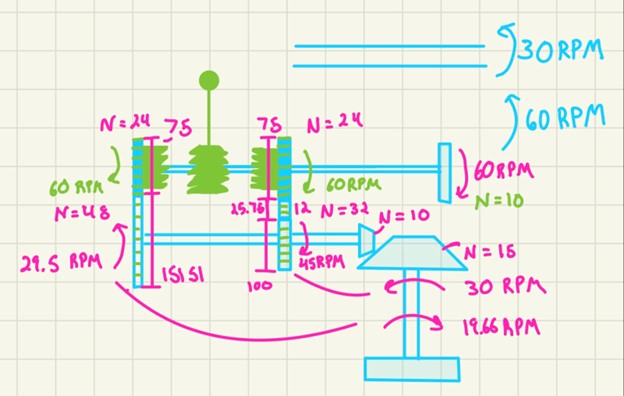 30 RPM
60 RPM
N=24
75
75
N=24
60 RPM
60 RPM
60 RPM
N=10
N=48
25.75
12
N=32
N=10
29.5 RPM
45RPM
N=15
15151
100
30 RPM
19.66 RPM